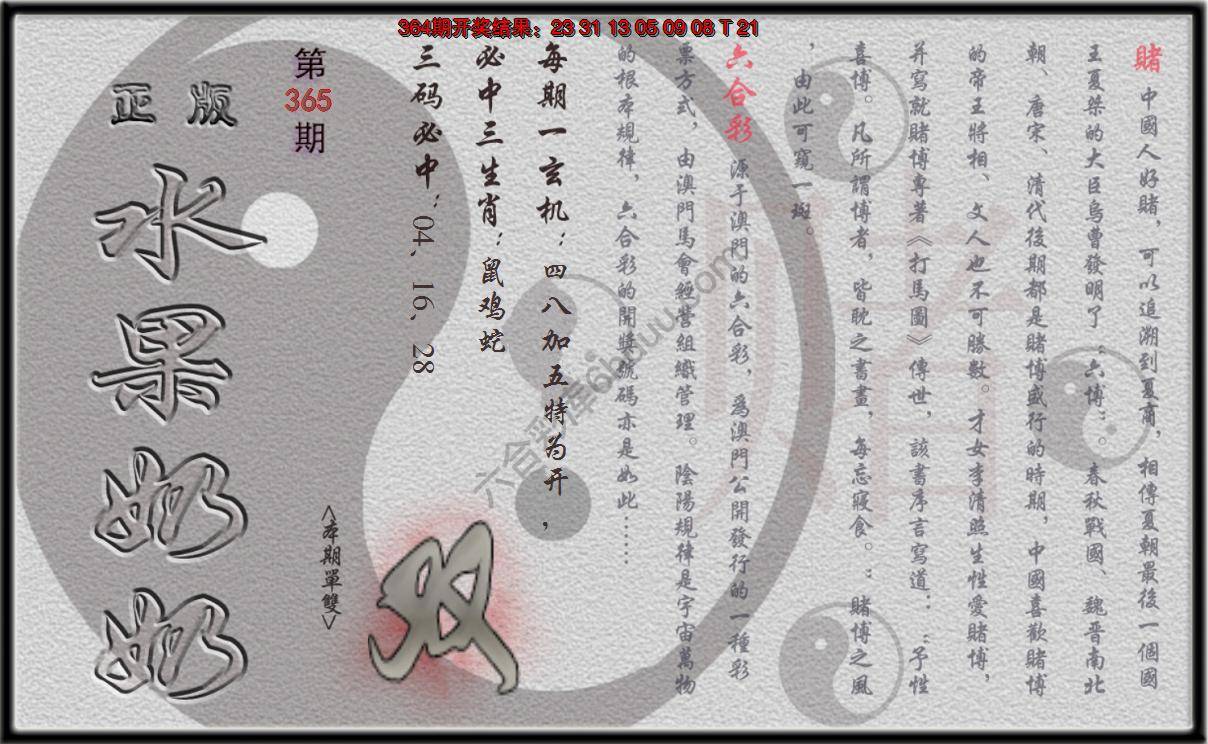 364期开奖结果：23 31 13 05 09 08 T 21
赌 中國人好賭，可以追溯到夏商，相傳夏朝最後一個國
王夏桀的大臣烏曹發明了“六博”。春秋戰國、魏晉南北
朝、唐宋、清代後期都是賭博盛行的時期，中國喜歡賭博
的帝王將相、文人也不可勝數。才女李清照生性愛賭博，
并寫就賭博專著《打馬圖》傳世，該書序言寫道：“予性
喜博。凡所謂博者，皆耽之晝，每忘寢食。：賭博之風
，由此可窺一斑。
六合彩 源于澳門的六合彩，爲澳門公開發行的一種彩
票方式，由澳門馬會經營組織管理。陰陽規律是宇宙萬物
的根本規律，六合彩的開獎號碼亦是如此……
每期一玄机：四八加五特为开，
必中三生肖：鼠鸡蛇
三码必中：04，16，28
第
365
期
正版
水果奶奶
<本期單雙>
双
赌
六合彩库6hduu.com